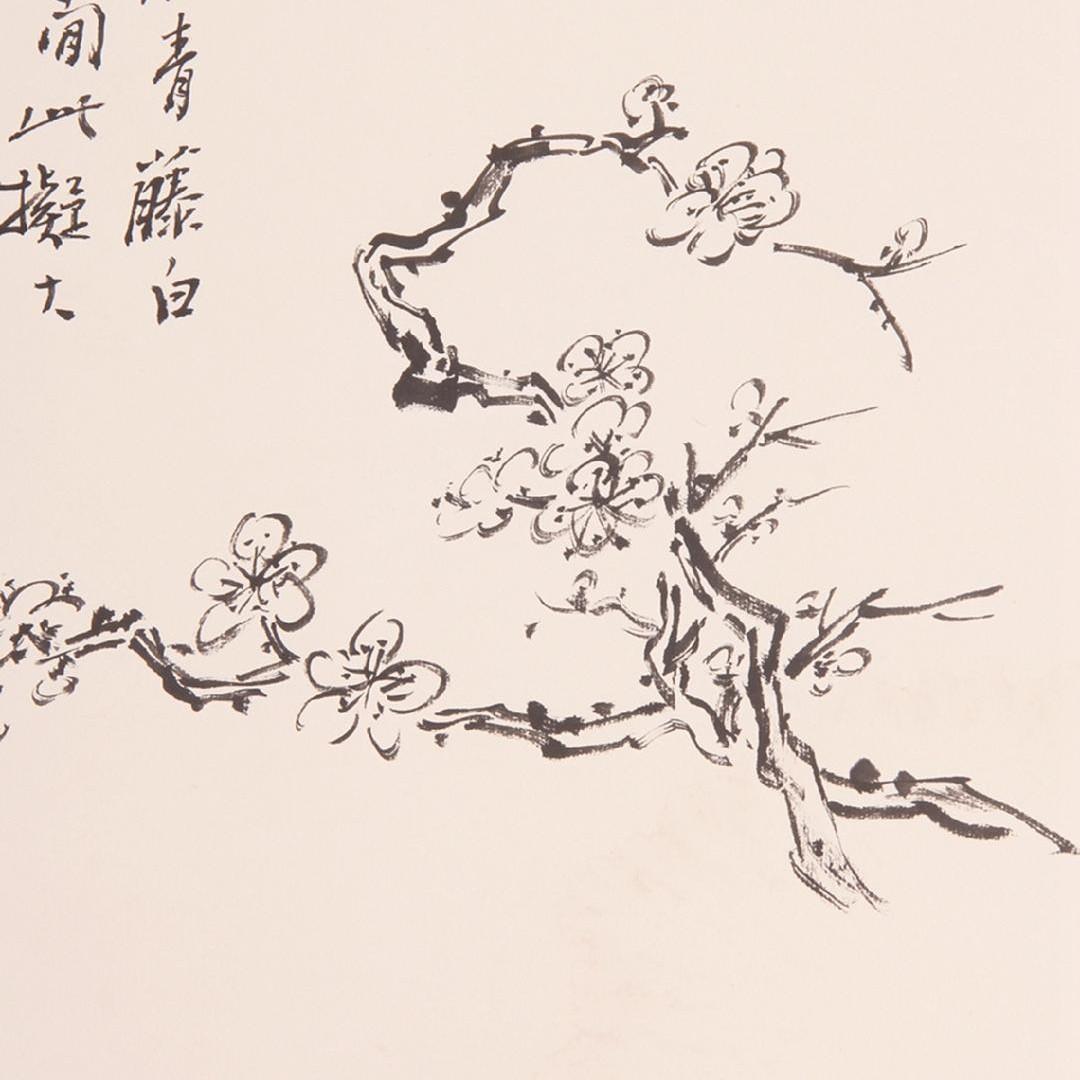 青藤白
間此擬大